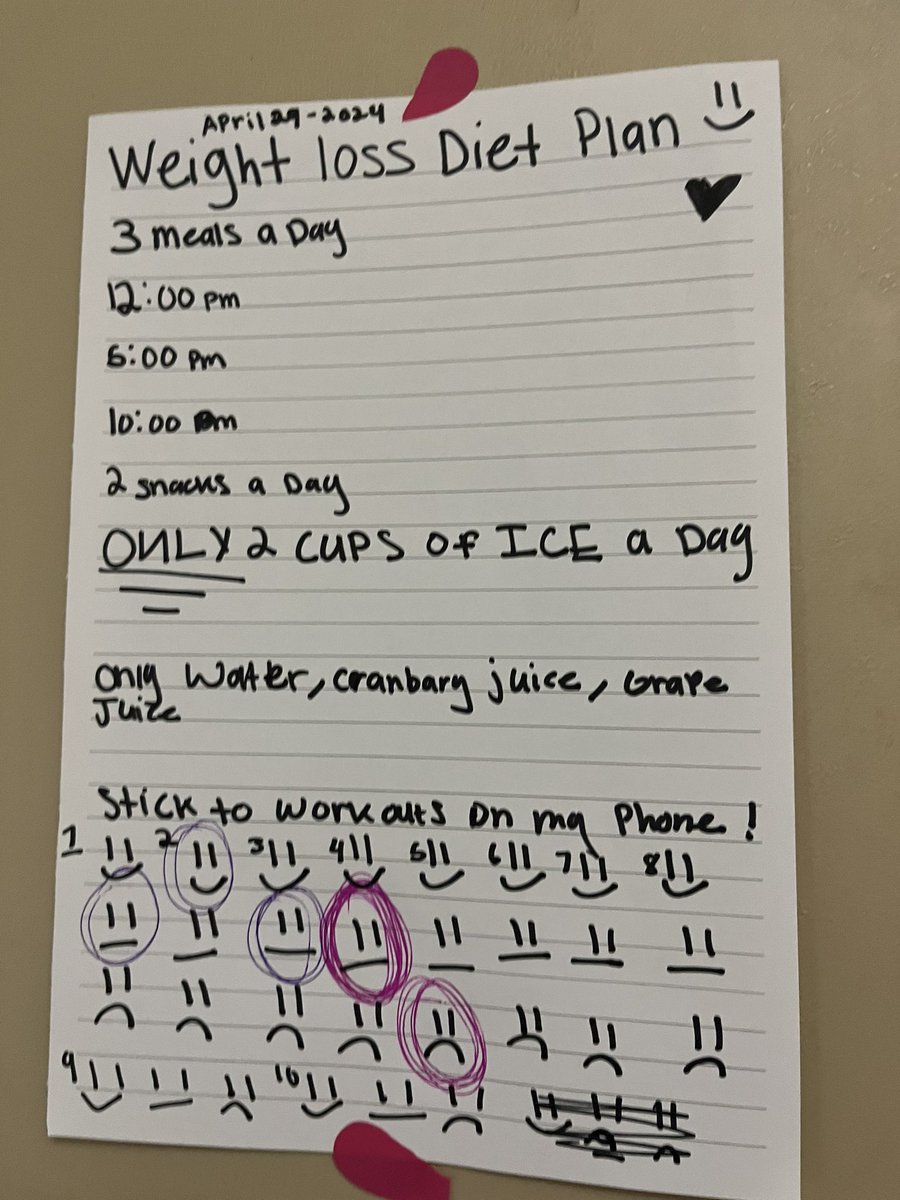 April 29-2024
Weight loss Diet Plan
3 meals a Day
12:00 pm
6:00 Pm
10:00 Pm
2 snacks a Day
ONLY 2 CUPS OF ICE a Day
only Watter, cranbary juice, Grape
Juice
Stick to workouts on my Phone!
1 2 3 4 5 6 7 8
9 10